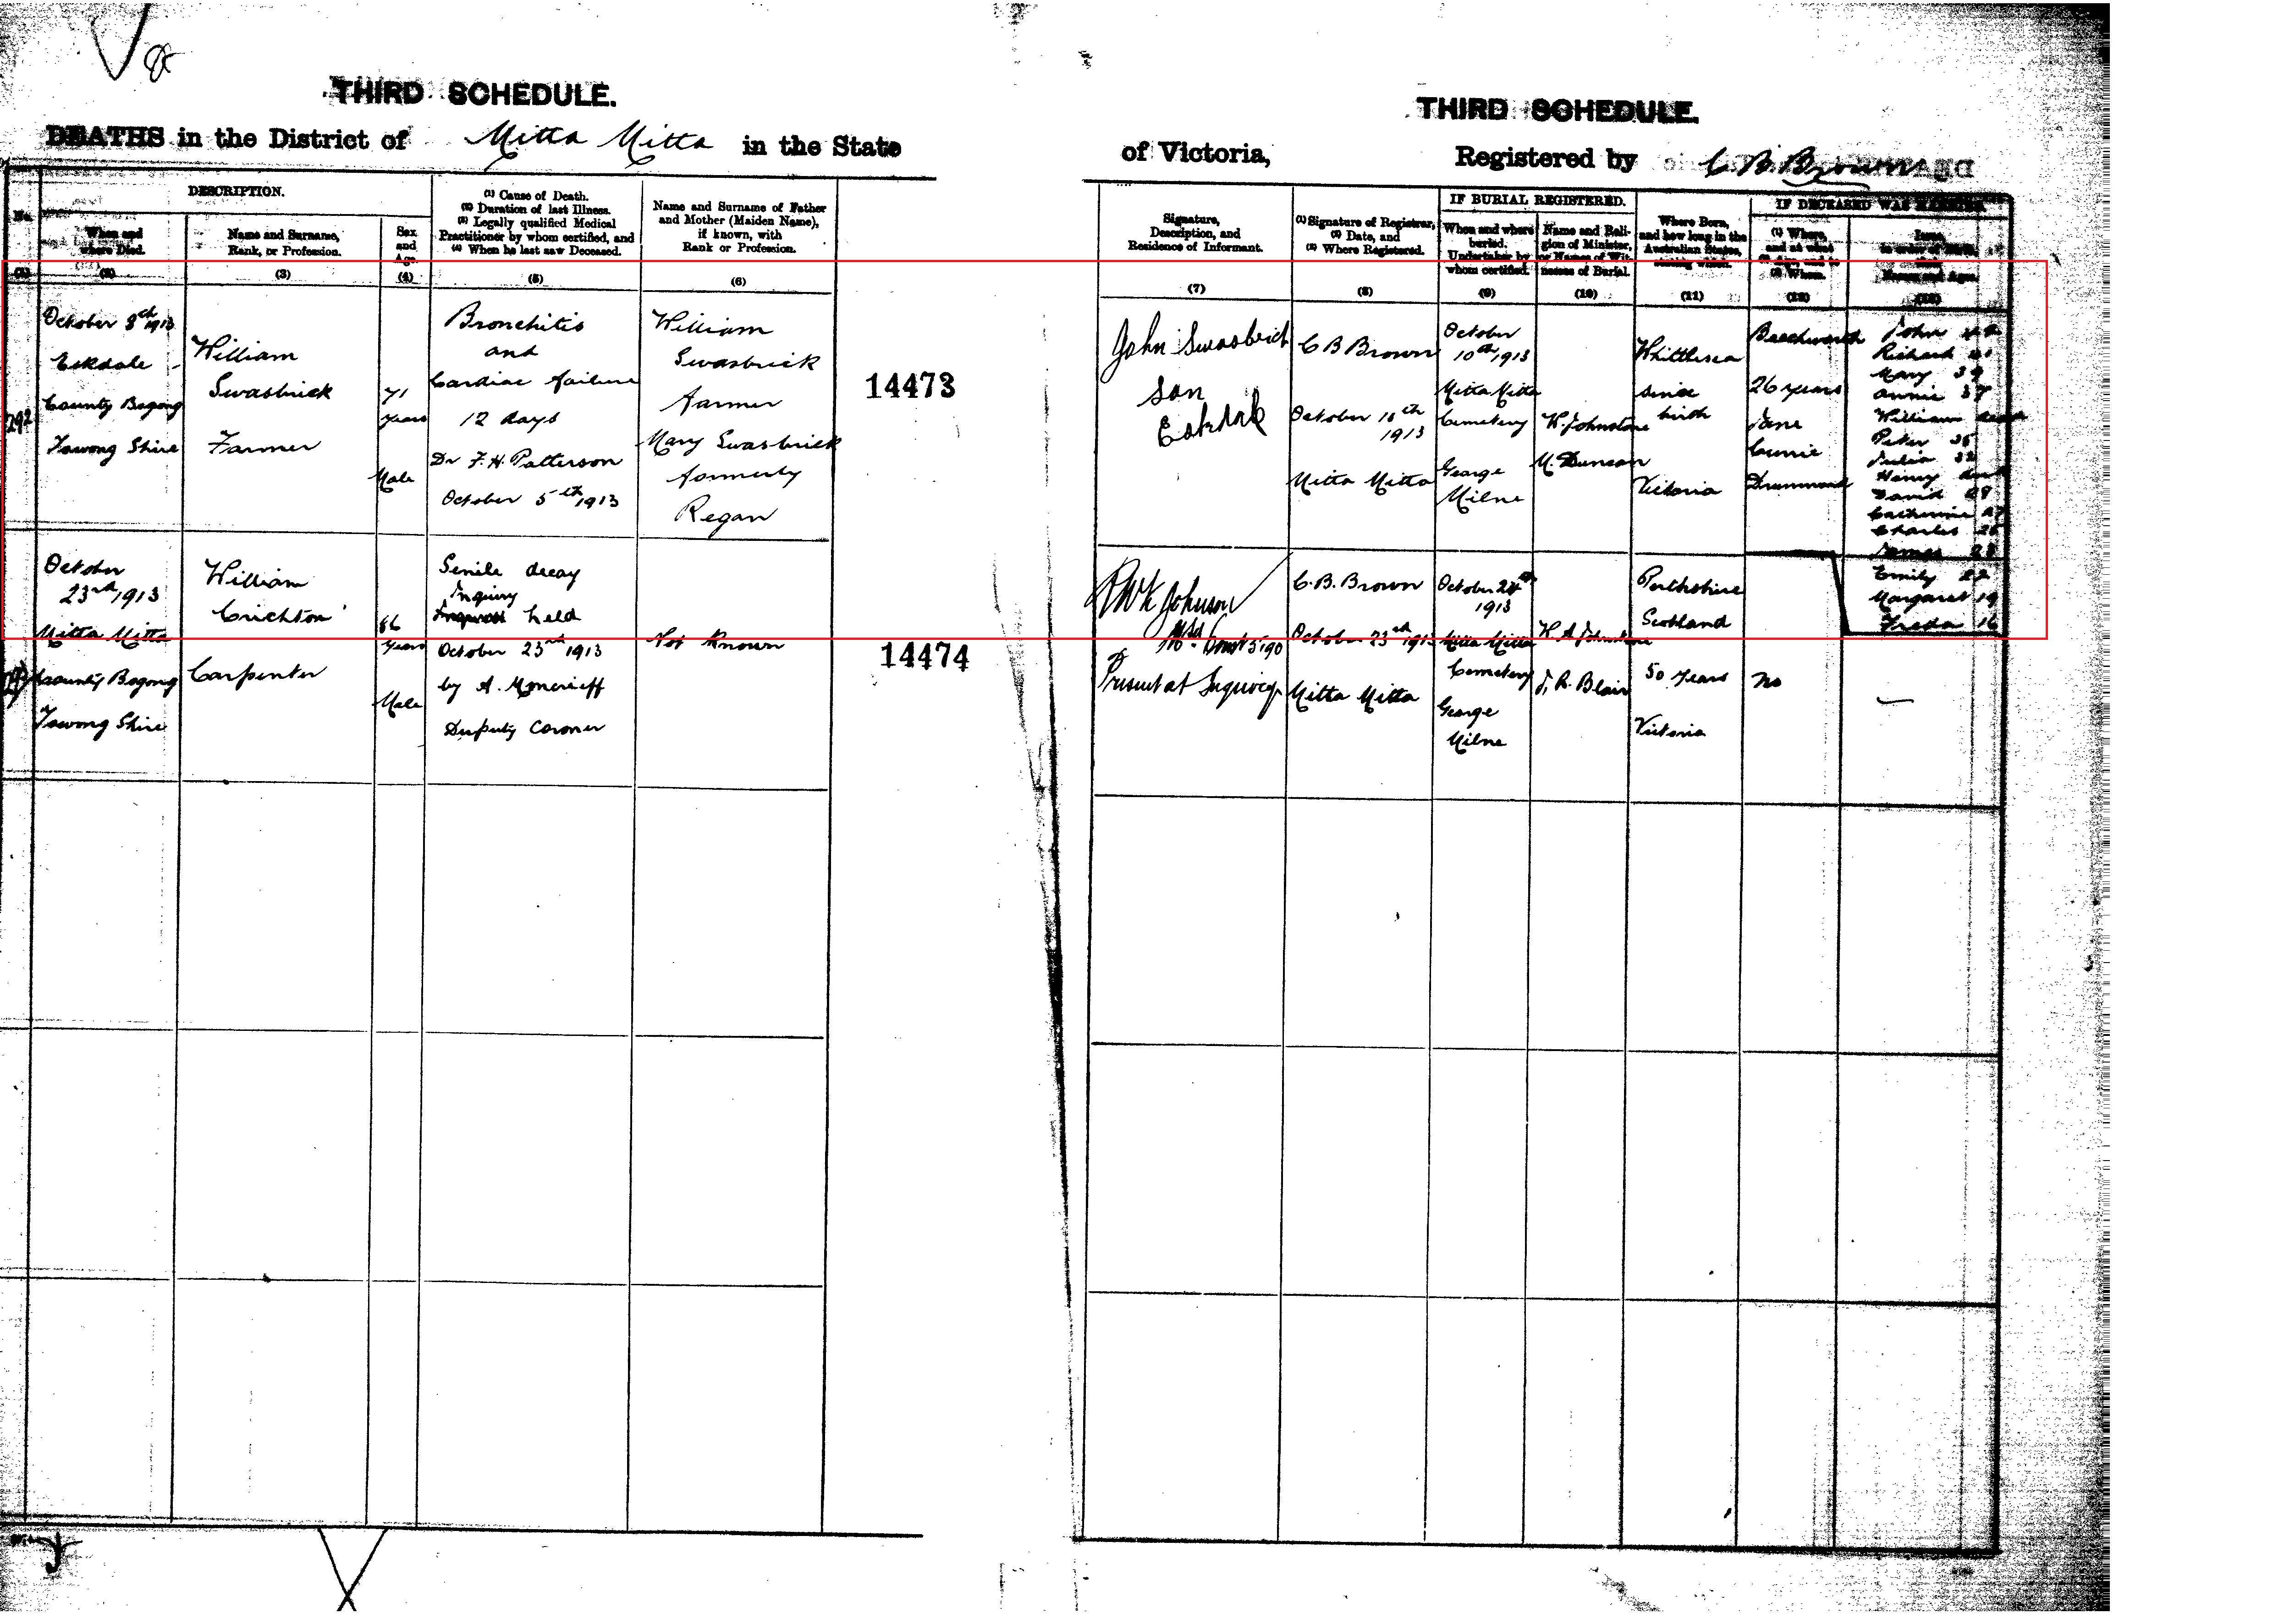 THIRD SCHEDULE.
DEATHS in the District of Mitta Mitta in the State
DESCRIPTION.
No.
When and where Died.
Name and Surname, Rank, or Profession.
Sex and Age.
(1) Cause of Death.
(2) Duration of last Illness.
(3) Legally qualified Medical
Practitioner by whom certified, and
(4) When he last saw Deceased.
Name and Surname of Father
and Mother (Maiden Name),
if known, with
Rank or Profession.
(1) (2) (3) (4) (5) (6)
292
October 8th 1913
Eskdale
County Bogong
Towong Shire
William
Swasbrick
Farmer
71
years
Male
Bronchitis
and
Cardiac failure
12 days
Dr F. H. Patterson
October 5th 1913
William
Swasbrick
farmer
Mary Swasbrick
formerly
Regan
14473
October
23rd 1913
Mitta Mitta
County Bogong
Towong Shire
William
Crichton
Carpenter
86
years
Male
Senile decay
Inquiry
held
October 23rd 1913
by A. Moncrieff
Deputy Coroner
Not Known
14474
THIRD SCHEDULE.
of Victoria, Registered by C B Brown
Signature,
Description, and
Residence of Informant.
(1) Signature of Registrar,
(2) Date, and
(3) Where Registered.
IF BURIAL REGISTERED.
When and where
buried.
Undertaker by
whom certified.
Name and Reli-
gion of Minister,
or Names of Wit-
nesses of Burial.
Where Born,
and how long in the
Australian States,
stating which.
IF DECEASED WAS MARRIED
(1) Where,
and at what
(2) Age, and to
(3) Whom.
Issue,
in order of Birth,
their
Names and Ages.
(7) (8) (9) (10) (11) (12) (13)
John Swasbrick
son
Eskdale
C B Brown
October 10th
1913
Mitta Mitta
October
10th 1913
Mitta Mitta
Cemetery
George
Milne
W. Johnstone
M. Duncan
Whittlesea
since
birth
Victoria
Beechworth
26 years
Jane
Currie
Drummond
John
Richard 41
Mary 39
Annie 37
William dead
Peter 35
Julia 32
Henry dead
David 29
Catherine 27
Charles 25
James 23
Emily 22
Margaret 19
Freda 16
Johnson
Const 5190
Present at Inquiry
C. B. Brown
October 23rd 1913
Mitta Mitta
October 24th
1913
Mitta Mitta
Cemetery
George
Milne
W A Johnstone
J. R. Blair
Perthshire
Scotland
50 Years
Victoria
No